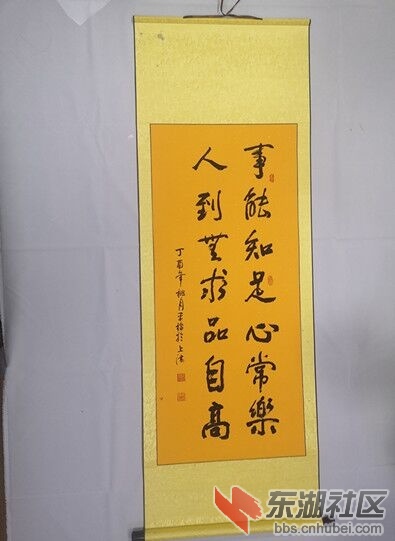 事能知足心常樂
人到無求品自高
丁酉年桃月
东湖社区
bbs.cnhubei.com